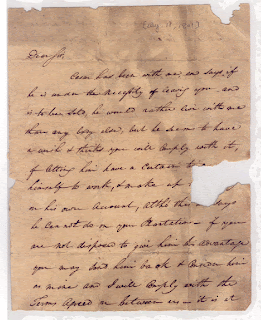 Dear Sir,
has been with me, and says, if
he is under the necessity of leaving you and
is to be sold, he would rather live with me
than any body else, but he seems to have
a wish & thinks you will comply with it,
of letting him have a Certain
himself to work, & make up
on his own Account, Altho this says
he Can not do on your Plantation - if you
are not disposed to give him the advantage
you may send him back & Consider him
as mine and I will Comply with the
Terms Agreed on between us - it is at